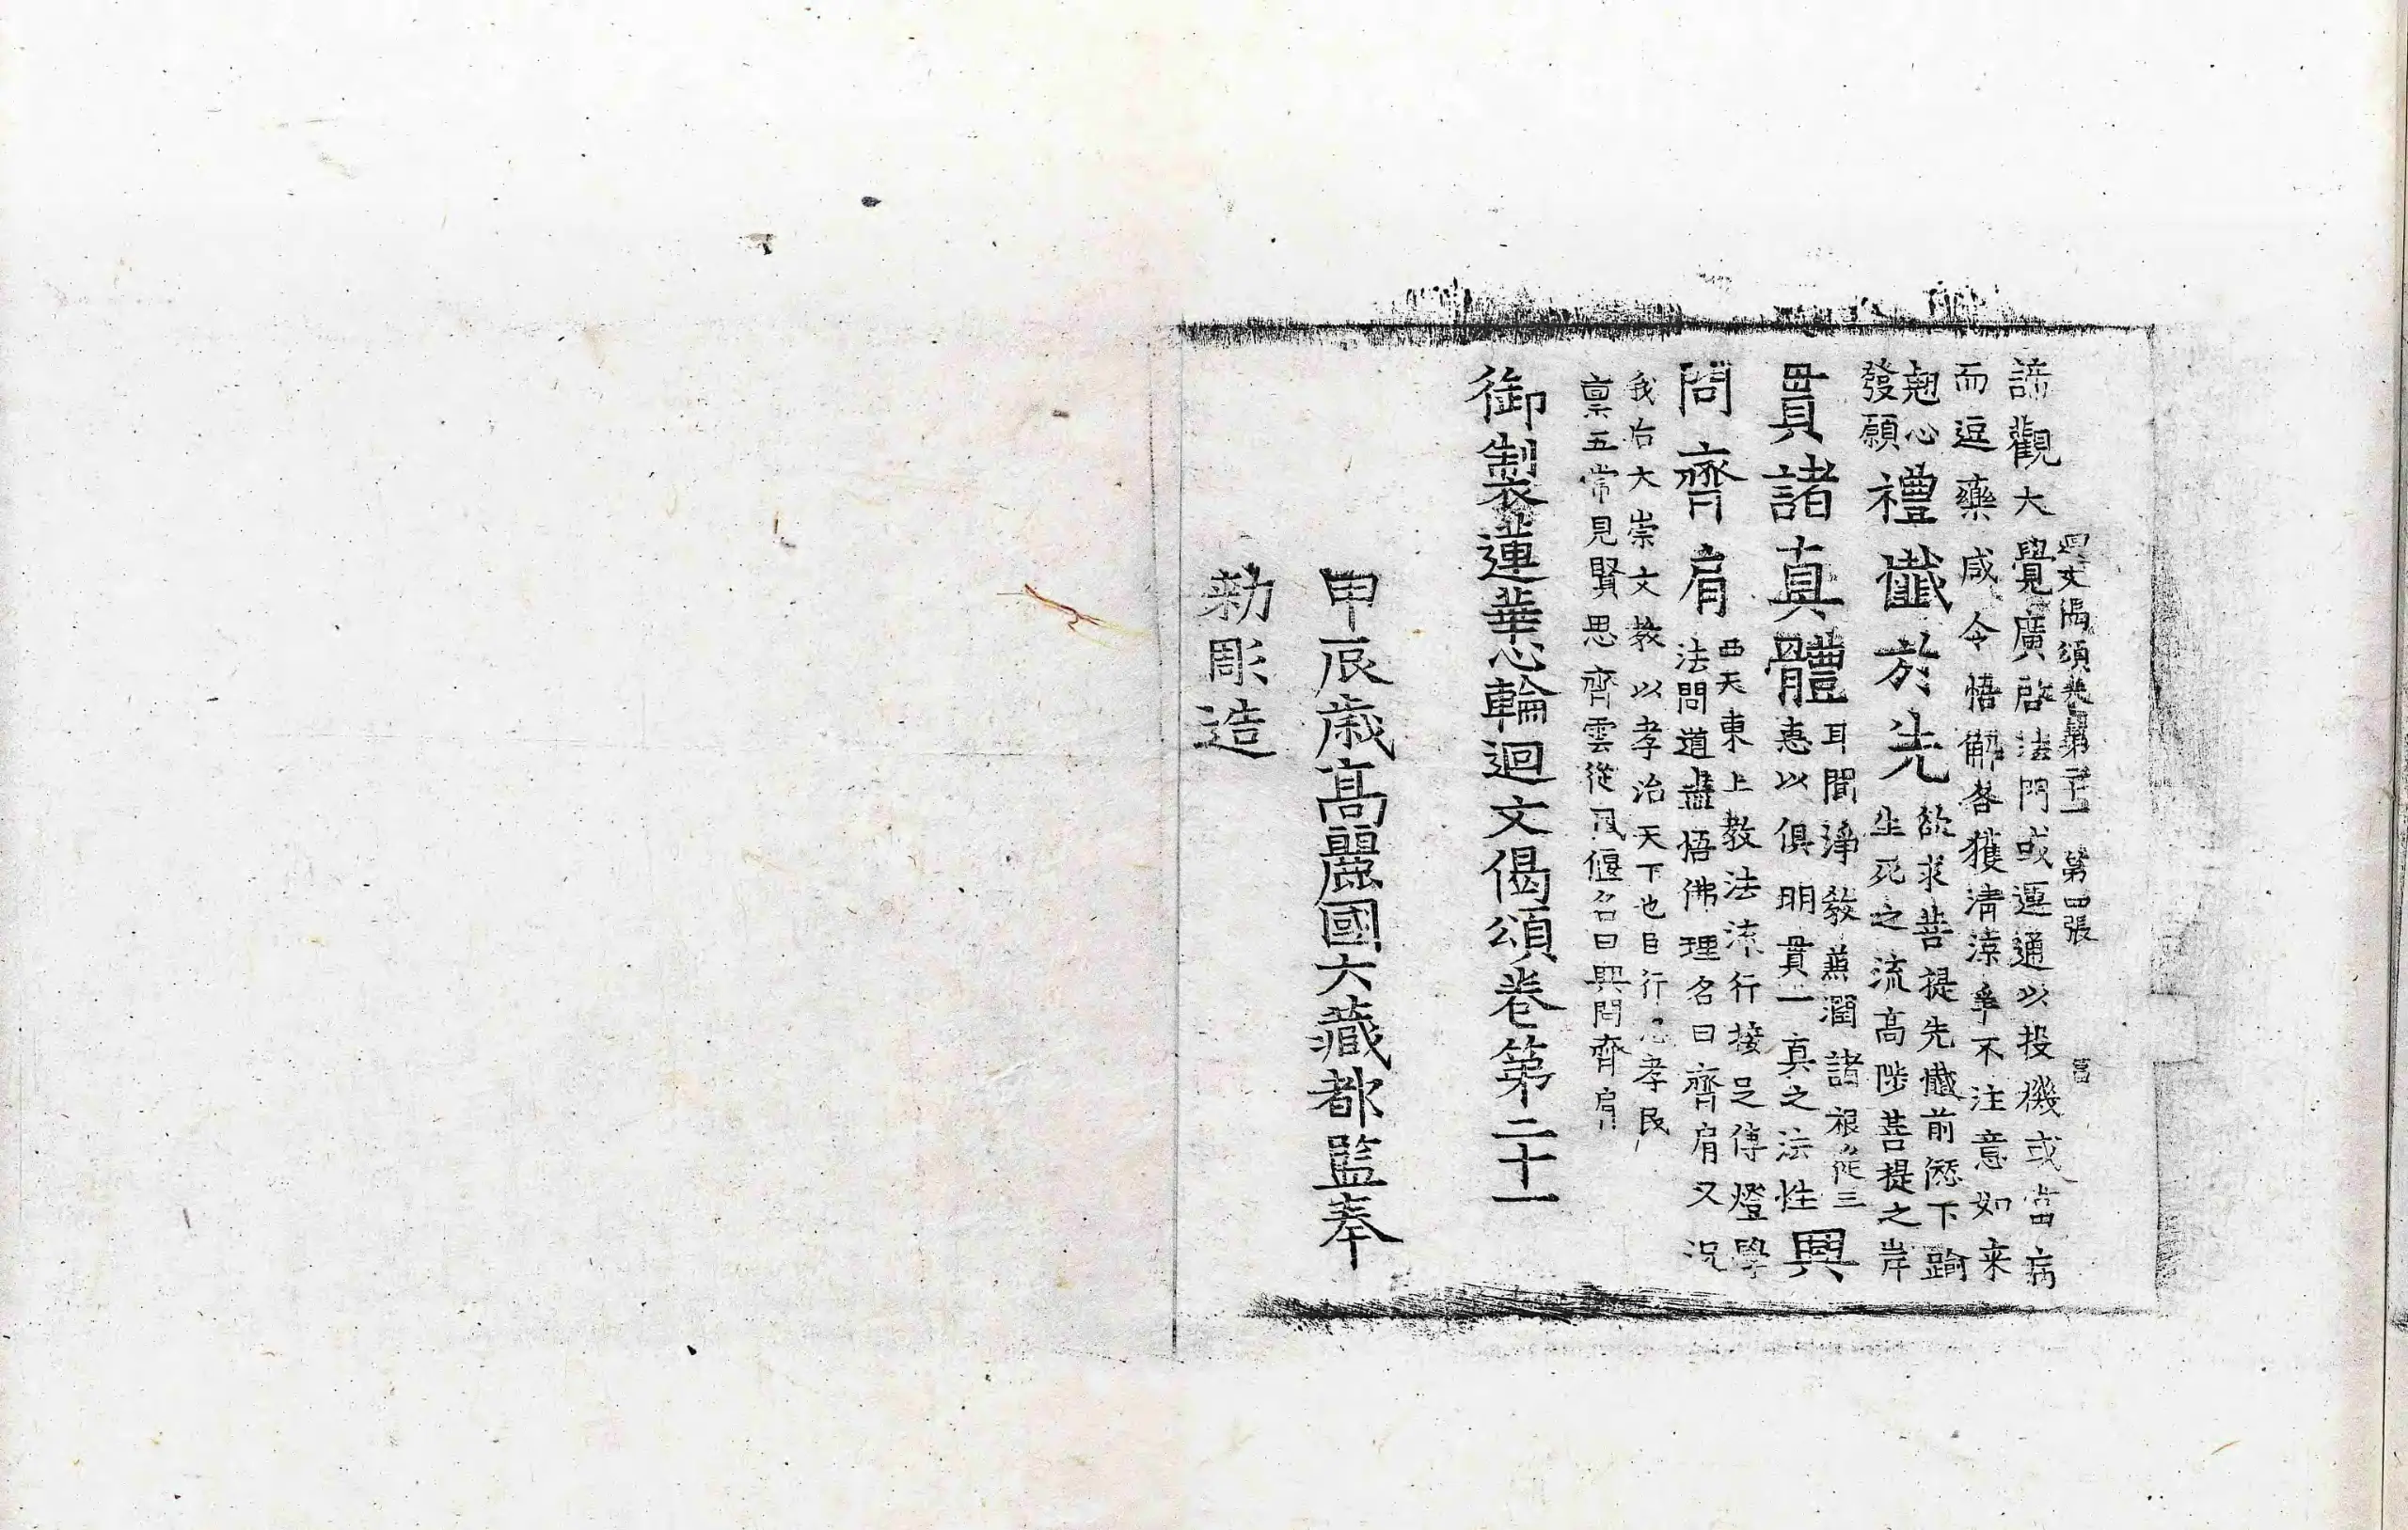 迴文偈頌卷第二十一 第四張 富
諦觀大覺廣啓法門或運通以投機或當病
而逗藥咸令悟解各獲淸涼爭不注意如来
翹心
發願
禮懺於先
欲求菩提先懺前愆下踰
生死之流高陟菩提之岸
貫諸真體
耳聞淨敎蕪潤諸根三
恵以俱明貫一真之法性
興
問齊肩
西天東上教法流行接足傳燈學
法問道盡悟佛理名曰齊肩又況
我右大崇文教以孝治天下也臣行孝民
禀五常見賢思齊雲從風偃名曰興問齊肩
御製蓮華心輪迴文偈頌卷第二十一
甲辰歲高麗國大藏都監奉
勑彫造